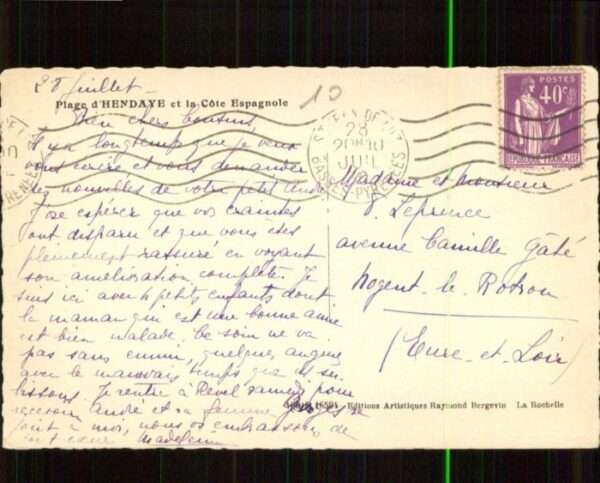 28 Juillet -
Plage d'HENDAYE et la Côte Espagnole
Bien chers cousins,
Il y a longtemps que je veux
vous écrire et vous demander
des nouvelles de votre petit André
J'ose espérer que vos craintes
ont disparu et que vous êtes
pleinement rassuré en voyant
son amélioration complète. Je
suis ici avec 4 petits enfants dont
la maman qui est une bonne amie
est bien malade. Ce soir ne va
pas sans ennui, quelques angine
avec le mauvais temps que
Je rentre à Revel samedi pour
recevoir André et sa femme
à moi, nous vous embrassons de
tout cœur Madeleine
10
28
20H10
JUIL
BASSES-PYRENEES
POSTES
40c
REPUBLIQUE FRANCAISE
Madame et Monsieur
Leprince
avenue Camille Gâté
Nogent-le Rotrou
(Eure-et-Loir)
Editions Artistiques Raymond Bergevin La Rochelle